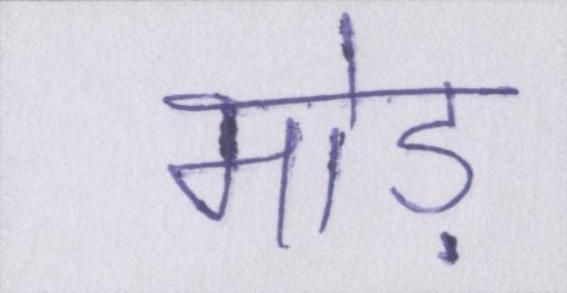 मोड़